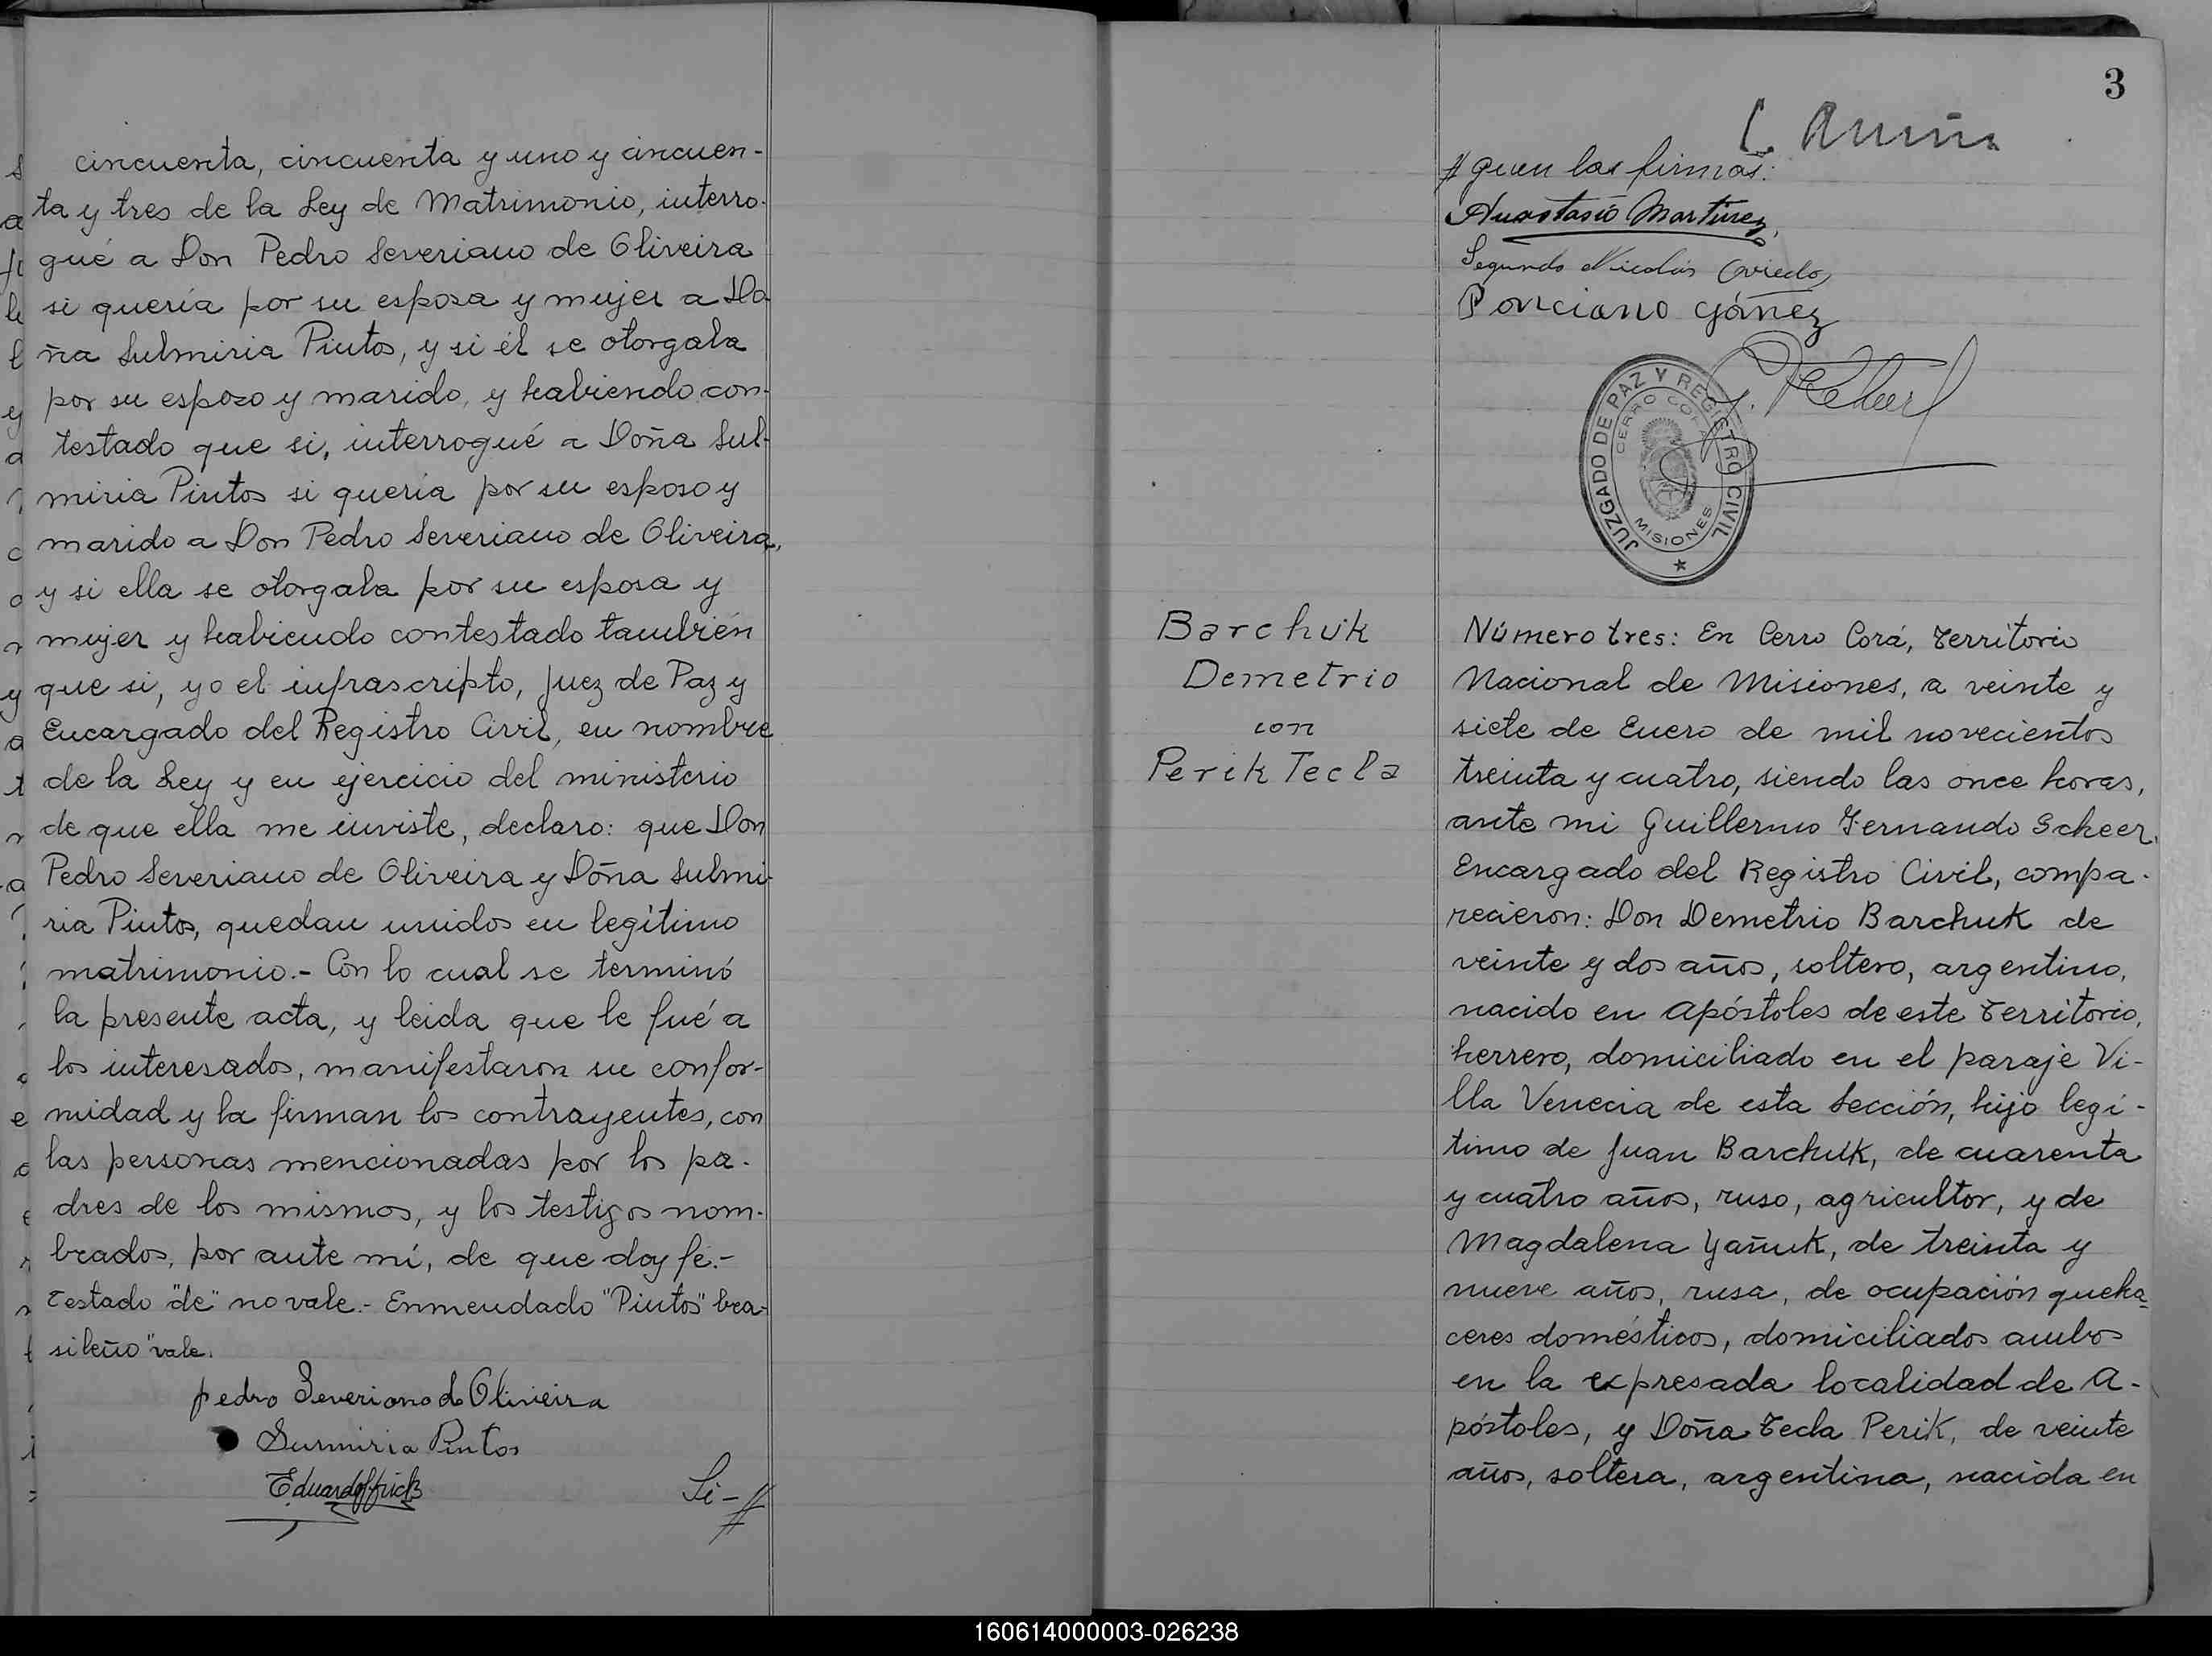 cincuenta, cincuenta y uno y cincuen-
ta y tres de la Ley de Matrimonio, interro-
gué a Don Pedro Severiano de Oliveira
si quería por su esposa y mujer a Do-
ña Sulmiria Pintos, y si él se otorgaba
por su esposo y marido, y habiendo con-
testado que si, interrogué a Doña Sul-
miria Pintos si quería por su esposo y
marido a Don Pedro Severiano de Oliveira,
y si ella se otorgaba por su esposa y
mujer y habiendo contestado también
que si, yo el infrascripto, Juez de Paz y
Encargado del Registro Civil, en nombre
de la Ley y en ejercicio del ministerio
de que ella me inviste, declaro: que Don
Pedro Severiano de Oliveira y Doña Sulmi-
ria Pintos, quedan unidos en legítimo
matrimonio.- Con lo cual se terminó
la presente acta, y leida que le fué a
los interesados, manifestaron su confor-
midad y la firman los contrayentes, con
las personas mencionadas por los pa-
dres de los mismos, y los testigos nom-
brados, por ante mí, de que doy fé.-
Testado "de" no vale.- Enmendado "Pintos" bra-
sileño "vale.
pedro Severiano de Oliveira
Surmiria Pintos
Si-#
3
# guen las firmas:
Anastasio Martinez,
Segundo Nicolás Oviedo
Ponciano Gómez
JUZGADO DE PAZ Y REGISTRO CIVIL
CERRO CORA
MISIONES
Barchuk
Demetrio
con
Perik Tecla
Número tres: En Cerro Corá, Territorio
Nacional de Misiones, a veinte y
siete de Enero de mil novecientos
treinta y cuatro, siendo las once horas,
ante mi Guillermo Fernando Scheer,
Encargado del Registro Civil, compa-
recieron: Don Demetrio Barchuk de
veinte y dos años, soltero, argentino,
nacido en Apóstoles de este Territorio,
herrero, domiciliado en el paraje Vi-
lla Venecia de esta Sección, hijo legí-
timo de Juan Barchuk, de cuarenta
y cuatro años, ruso, agricultor, y de
Magdalena Yañuk, de treinta y
nueve años, rusa, de ocupación queha-
ceres domésticos, domiciliados ambos
en la expresada localidad de A-
póstoles, y Doña Tecla Perik, de veinte
años, soltera, argentina, nacida en
160614000003-026238